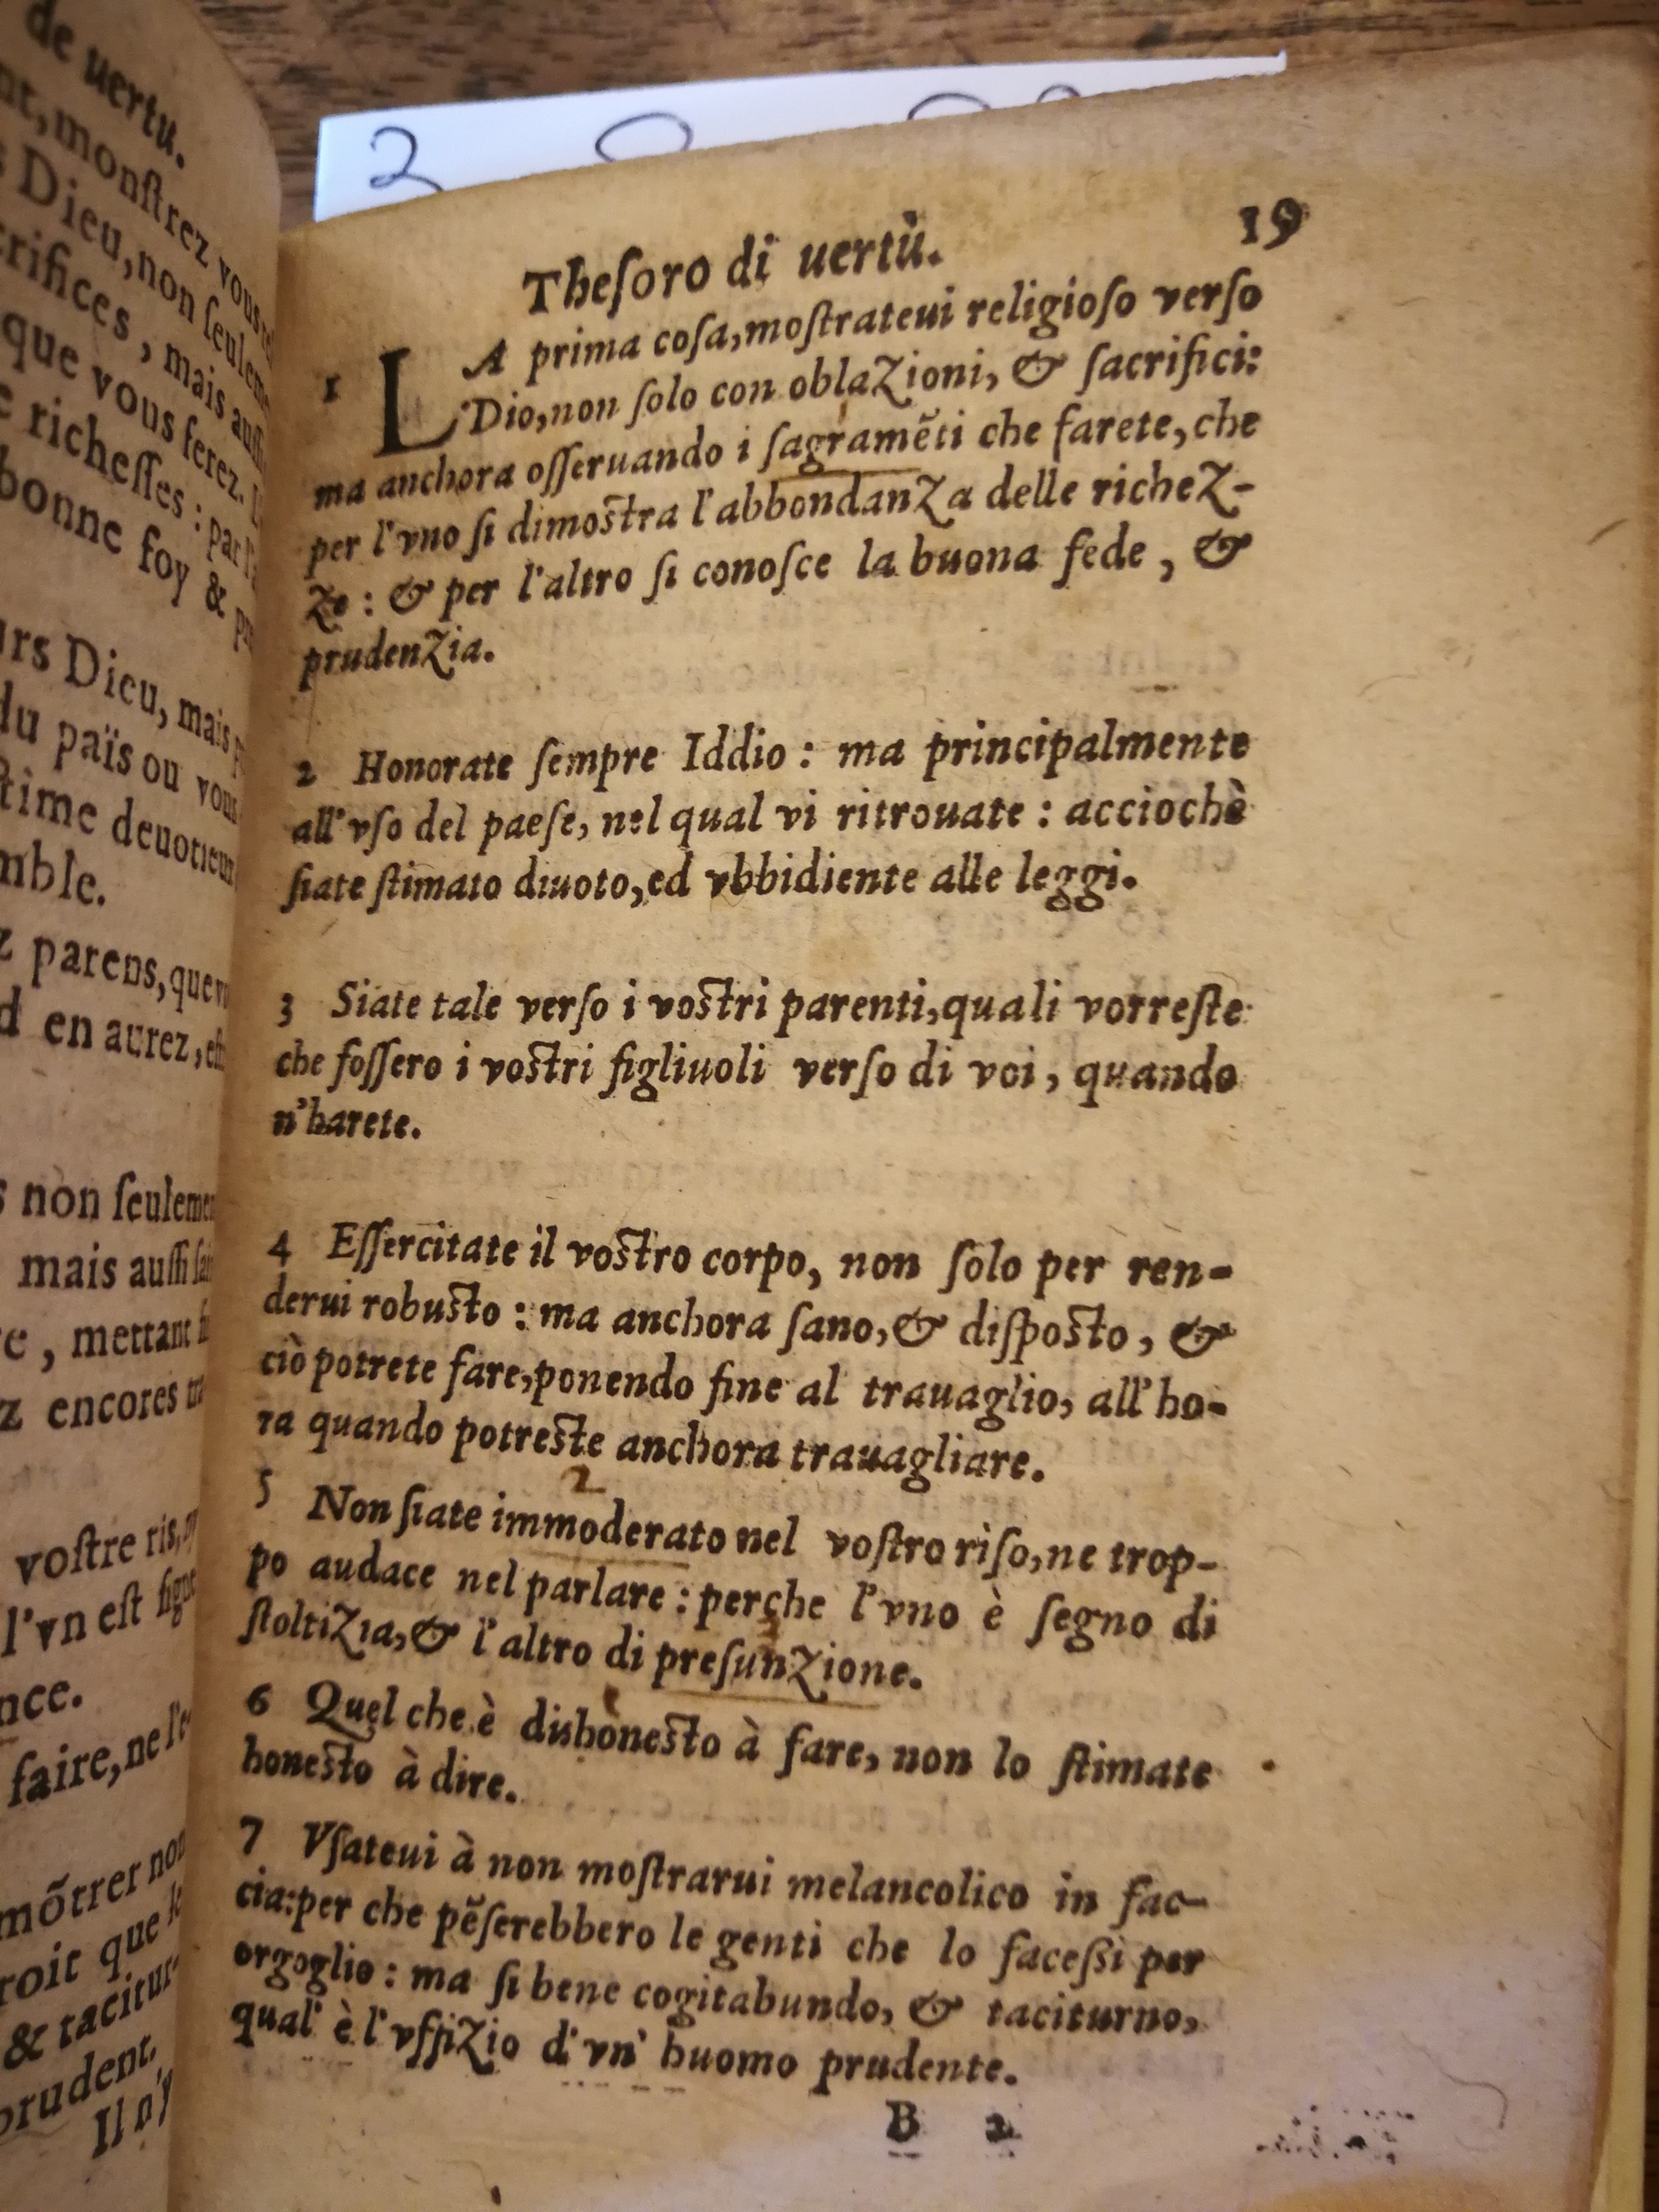 de uertu.
monstrez vous
Dieu, non seuleme
crifices, mais aussi
que vous ferez.
richesses: par
bonne foy &
Dieu, mais
du païs ou vous
time
parens, que
en aurez,
non seulemen
mais aussi
, mettant
encores
vostre ris,
l'vn est signe
faire, ne
mõtrer non
roit que
& tacitur-
prudent.
Il n'y
2
Thesoro di uertù.
19
1 LA prima cosa, mostrateui religioso verso
Dio, non solo con oblazioni, & sacrifici:
ma anchora osseruando i sagramẽti che farete, che
per l'vno si dimostra l'abbondanza delle richez-
ze: & per l'altro si conosce la buona fede, &
prudenzia.
2 Honorate sempre Iddio: ma principalmente
all'vso del paese, nel qual vi ritrouate: acciochè
siate stimato diuoto, ed vbbidiente alle leggi.
3 Siate tale verso i vostri parenti, quali vorreste
che fossero i vostri figliuoli verso di voi, quando
n'harete.
4 Essercitate il vostro corpo, non solo per ren-
derui robusto: ma anchora sano, & disposto, &
ciò potrete fare, ponendo fine al trauaglio, all'ho-
ra quando potreste anchora trauagliare.
2
5 Non siate immoderato nel vostro riso, ne trop-
po audace nel parlare: perche l'vno è segno di
stoltizia, & l'altro di presunzione.
6 Quel che è dishonesto à fare, non lo stimate
honesto à dire.
7 Vsateui à non mostrarui melancolico in fac-
cia: per che pẽserebbero le genti che lo facessi per
orgoglio: ma si bene cogitabundo, & taciturno,
qual' è l'vffizio d'vn' huomo prudente.
B 2